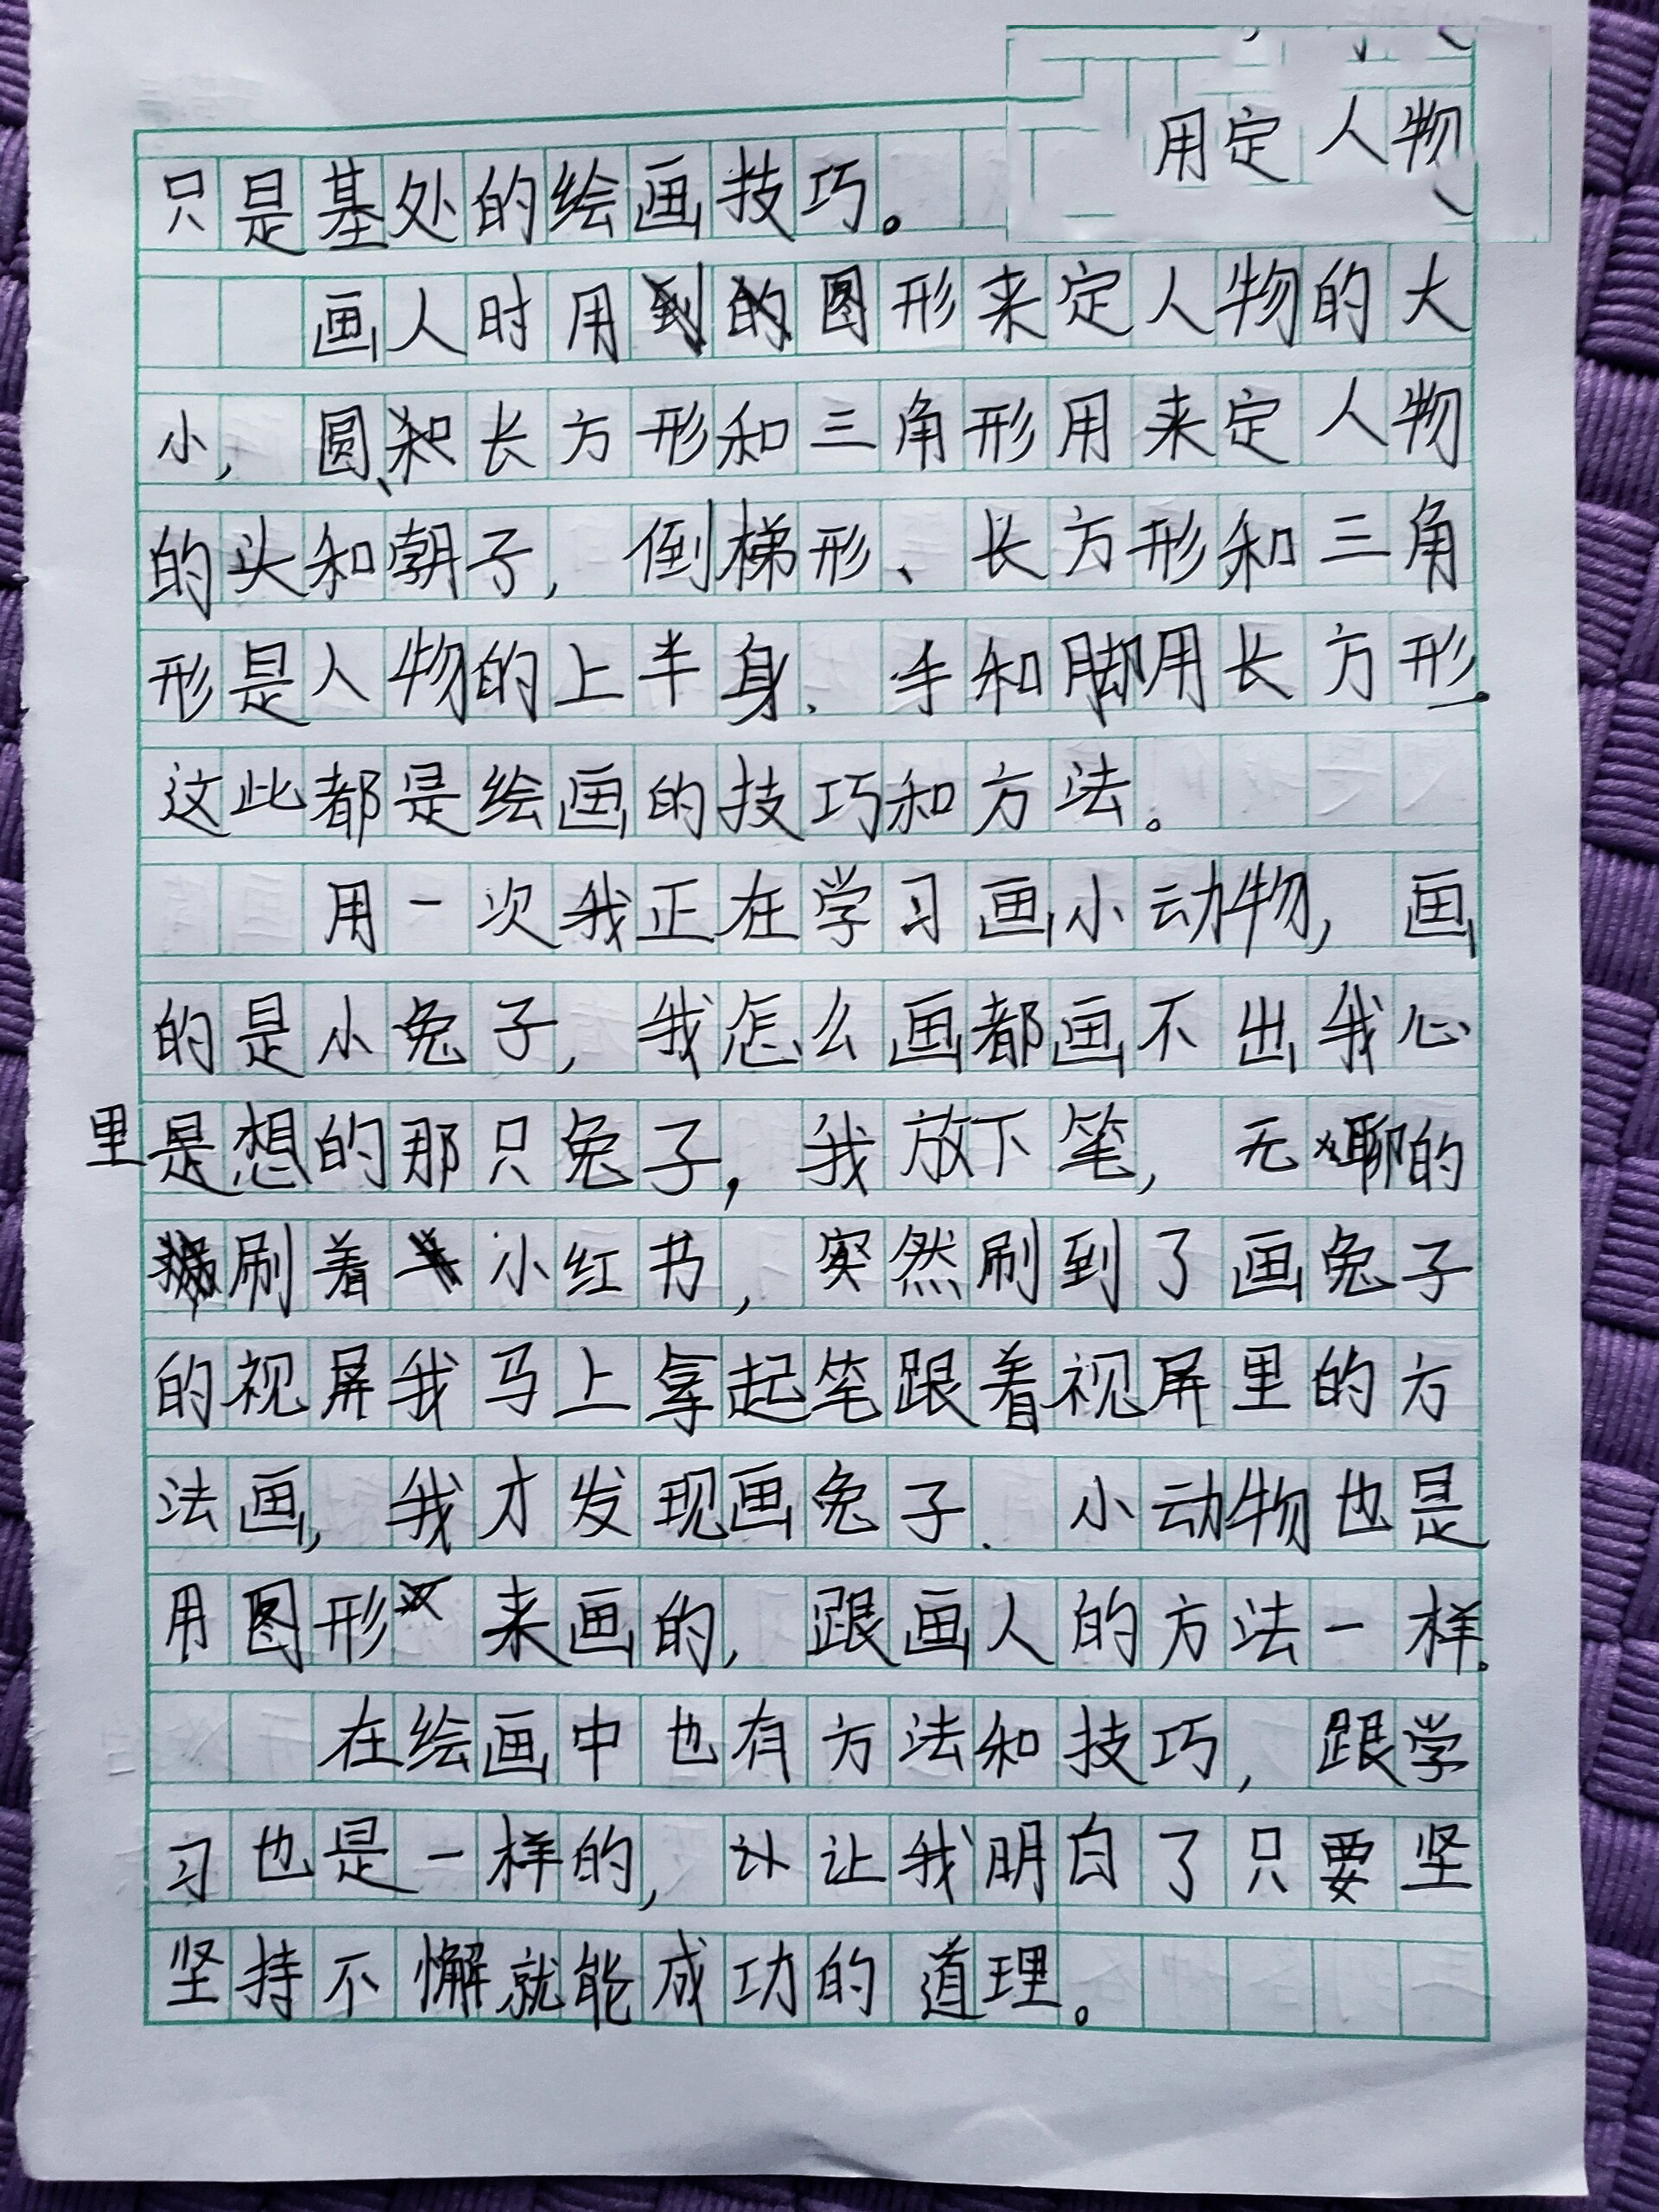 用定人物
只是基处的绘画技巧。
画人时用图形来定人物的大
小，圆、长方形和三角形用来定人物
的头和朝子，倒梯形、长方形和三角
形是人物的上半身．手和脚用长方形。
这此都是绘画的技巧和方法。
用一次我正在学习画小动物，画
的是小兔子，我怎么画都画不出我心
里是想的那只兔子，我放下笔，无聊的
刷着小红书，突然刷到了画兔子
的视屏我马上拿起笔跟着视屏里的方
法画，我才发现画兔子．小动物也是
用图形来画的，跟画人的方法一样。
在绘画中也有方法和技巧，跟学
习也是一样的，让我明白了只要坚
坚持不懈就能成功的道理。